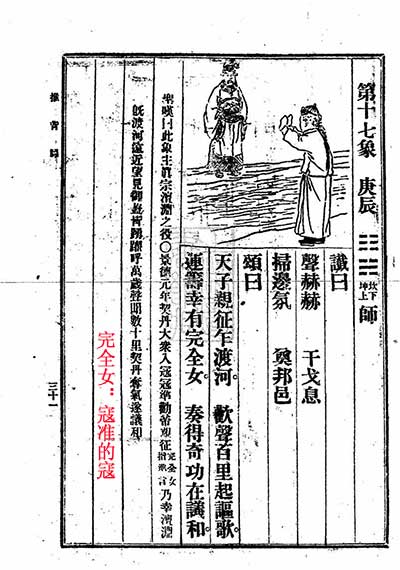 第十七象 庚辰 坎下坤上 師
讖曰
聲赫赫 干戈息
掃邊氛 奠邦邑
頌曰
天子親征乍渡河 歡聲百里起謳歌
運籌幸有完全女 奏得奇功在議和
聖嘆曰此象主眞宗澶淵之役○景德元年契丹大衆入寇寇準勸帝親征完全女指寇言乃幸澶淵
旣渡河遠近望見御蓋皆踴躍呼萬歲聲聞數十里契丹奪氣遂議和
完全女：寇准的寇
推背圖
三十一